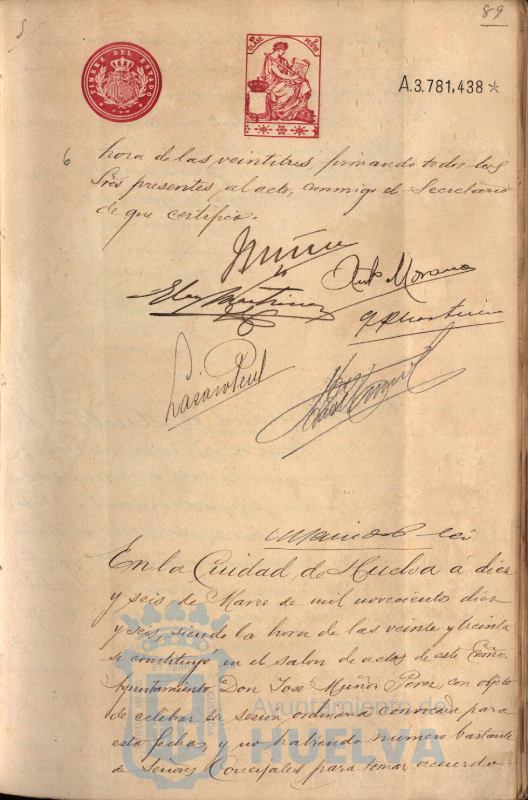 89
TIMBRE DEL ESTADO
A.3.781,438 *
hora de las veintitres, firmando todos los
Sres presentes, al acto, conmigo el Secretario
de que certifico.
Muñoz
Antº Moreno
Lázaro Peul
En la Ciudad de Huelva á diez
y seis de Marzo de mil novecientos diez
y seis, siendo la hora de las veinte y treinta
se constituyó en el salon de actos de este Excmo.
Ayuntamiento, Don Jose Muñoz Perez, con objeto
de celebrar la sesion ordinaria convocada para
esta fecha, y no habiendo numero bastante
de Señores Concejales para tomar acuerdo
Ayuntamiento de
HUELVA